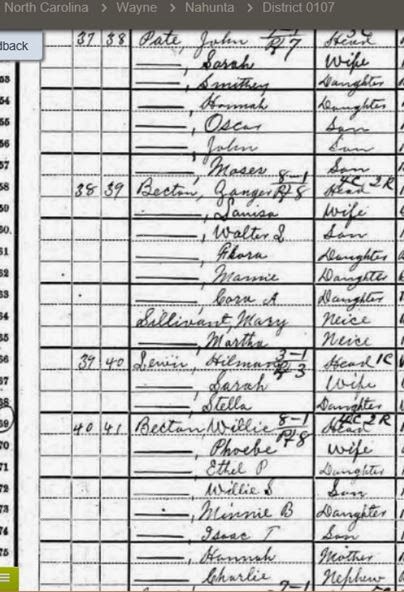 North Carolina > Wayne > Nahunta > District 0107
dback
37 38 Pate, John R 7 Head
53 ——, Sarah Wife
——, Smithey Daughter
54 ——, Hannah Daughter
55 ——, Oscar Son
56 ——, John Son
57 ——, Moses Son
58 38 39 Becton, 8-1 R-8 4C 2R Head
59 ——, Louisa Wife
60 ——, Walter Son
61 ——, Daughter
62 ——, Mamie Daughter
63 ——, Cora A Daughter
64 Sillivant, Mary Neice
65 ——, Martha Neice
66 39 40 Lewis, Hilman 3-1 R 3 Head 1C
67 ——, Sarah Wife
68 ——, Stella Daughter
69 40 41 Becton, Willie 8-1 R-8 4C 2R Head
70 ——, Phoebe Wife
71 ——, Ethel P Daughter
72 ——, Willie S Son
73 ——, Minnie B Daughter
74 ——, Isaac T Son
75 ——, Hannah Mother
——, Charlie Nephew